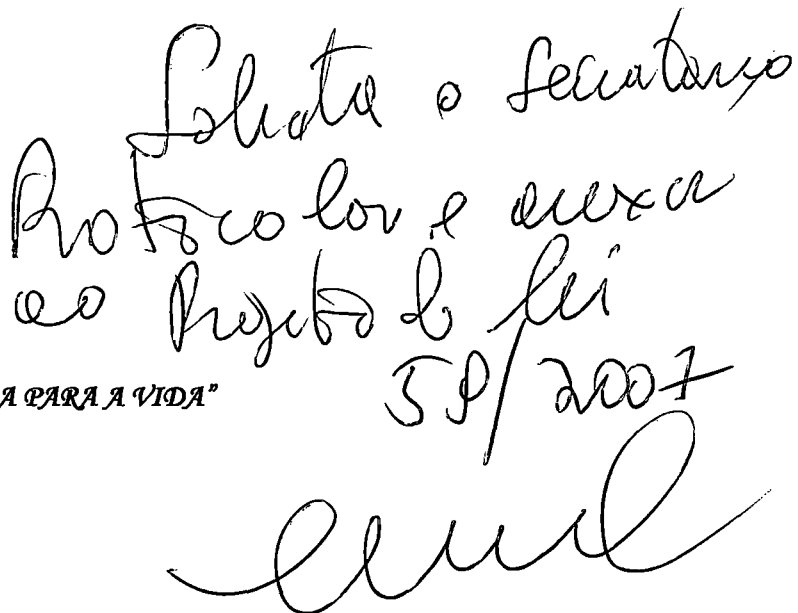 Solicita o Secretario
Protocolar e anexar
ao Projeto de Lei
58/2007
A PARA A VIDA"